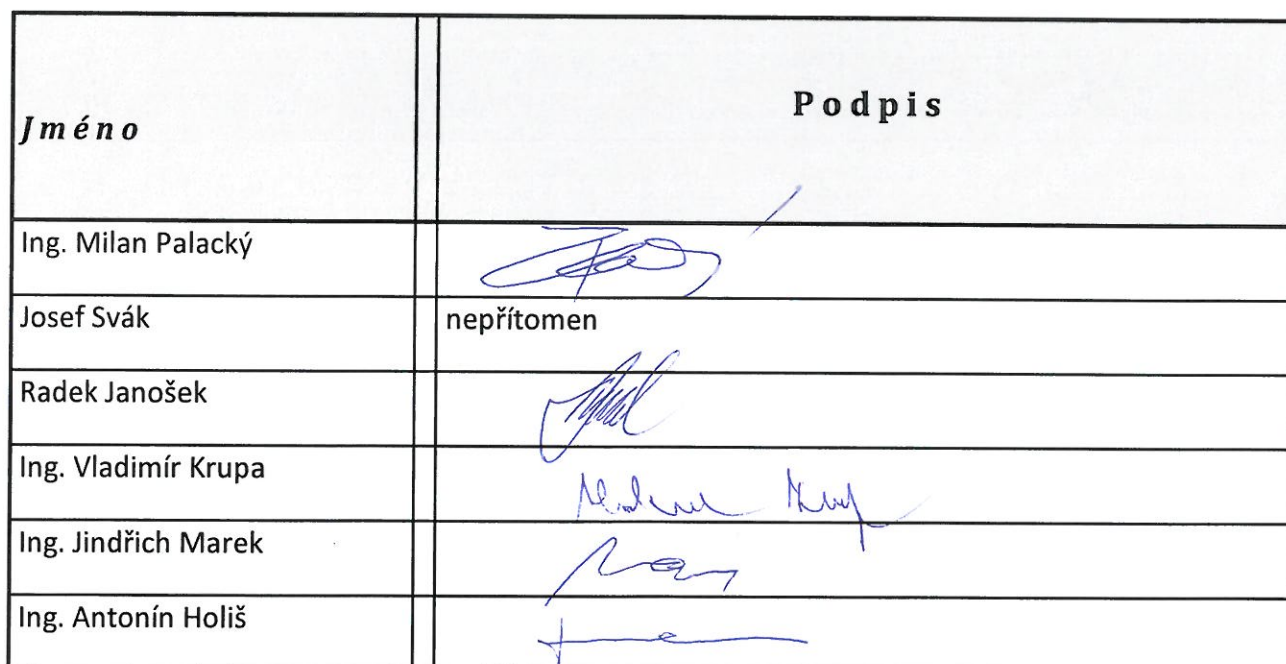 Jméno Podpis
Ing. Milan Palacký
Josef Svák nepřítomen
Radek Janošek
Ing. Vladimír Krupa
Ing. Jindřich Marek
Ing. Antonín Holiš